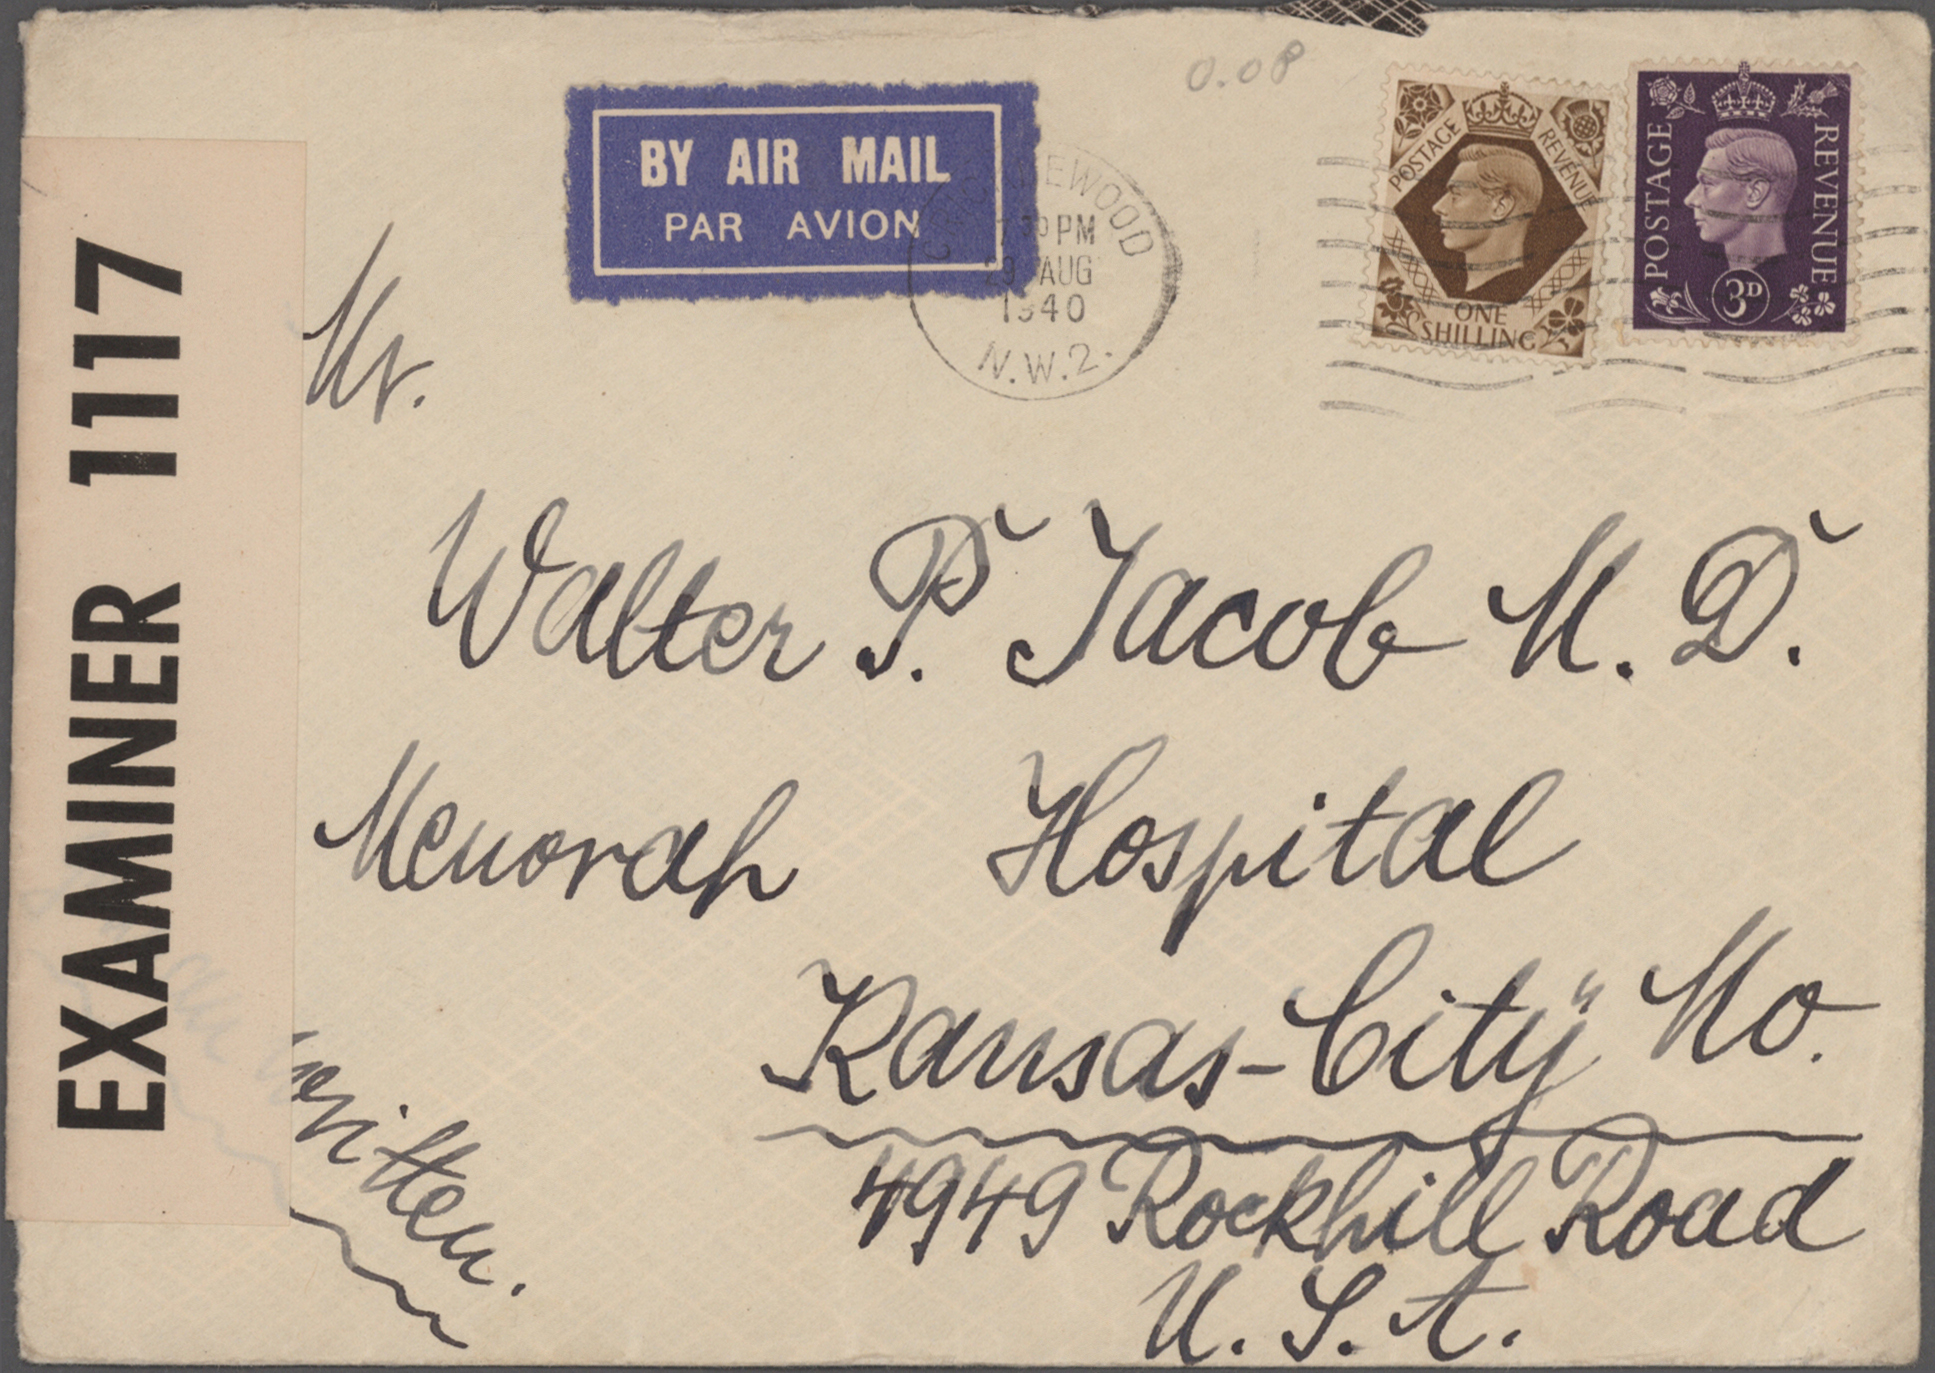 0.08
BY AIR MAIL
PAR AVION
EWOOD
30 PM
29 AUG
1940
N.W.2.
POSTAGE REVENUE
ONE
SHILLING
POSTAGE REVENUE
3D
EXAMINER 1117
Mr.
Walter P. Jacob M. D.
Menorah Hospital
Kansas-City Mo.
4949 Rockhill Road
U. S. A.